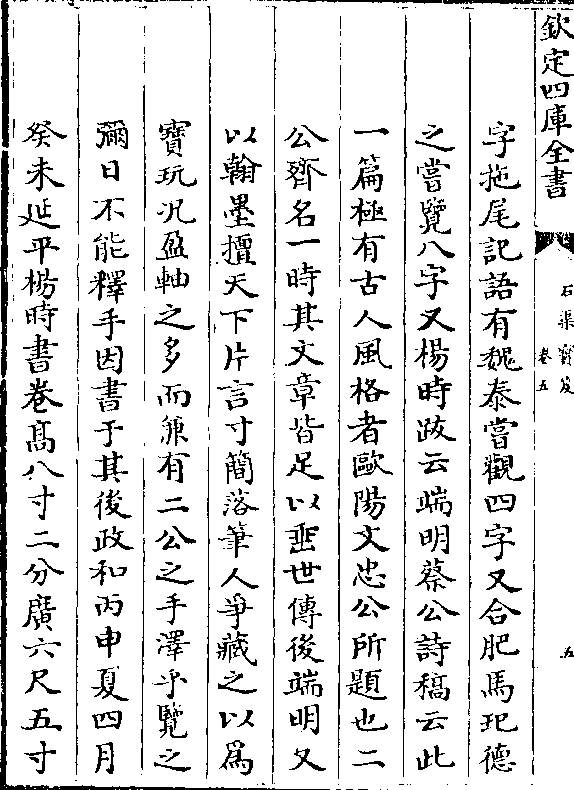 欽定四庫全書
石渠寳笈
卷五
五
字拖尾記語有魏泰嘗觀四字又合肥馬玘德
之嘗覽八字又楊時跋云端明蔡公詩稿云此
一篇極有古人風格者歐陽文忠公所題也二
公齊名一時其文章皆足以垂世傳後端明又
以翰墨擅天下片言寸簡落筆人爭藏之以為
寶玩况盈軸之多而兼有二公之手澤乎覽之
彌日不能釋手因書于其後政和丙申夏四月
癸未延平楊時書卷髙八寸二分廣六尺五寸